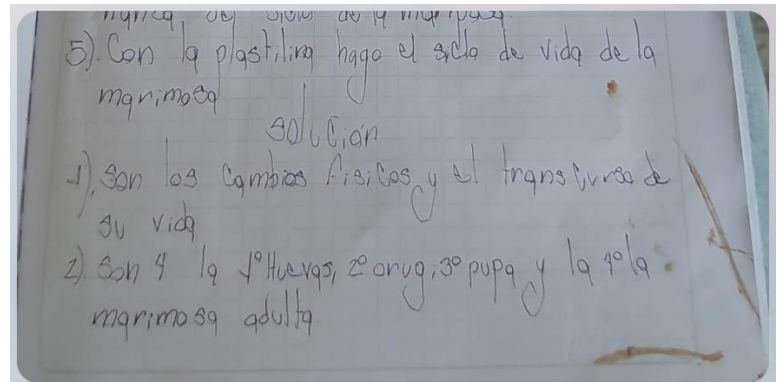 5). Con la plastilina hago el siclo de vida de la
marimosa
solución
1). son los cambios fisicos y el transcurso de
su vida
2). Son 4 la 1° Huevas, 2° orug, 3° pupa y la 4° la
marimosa adulta